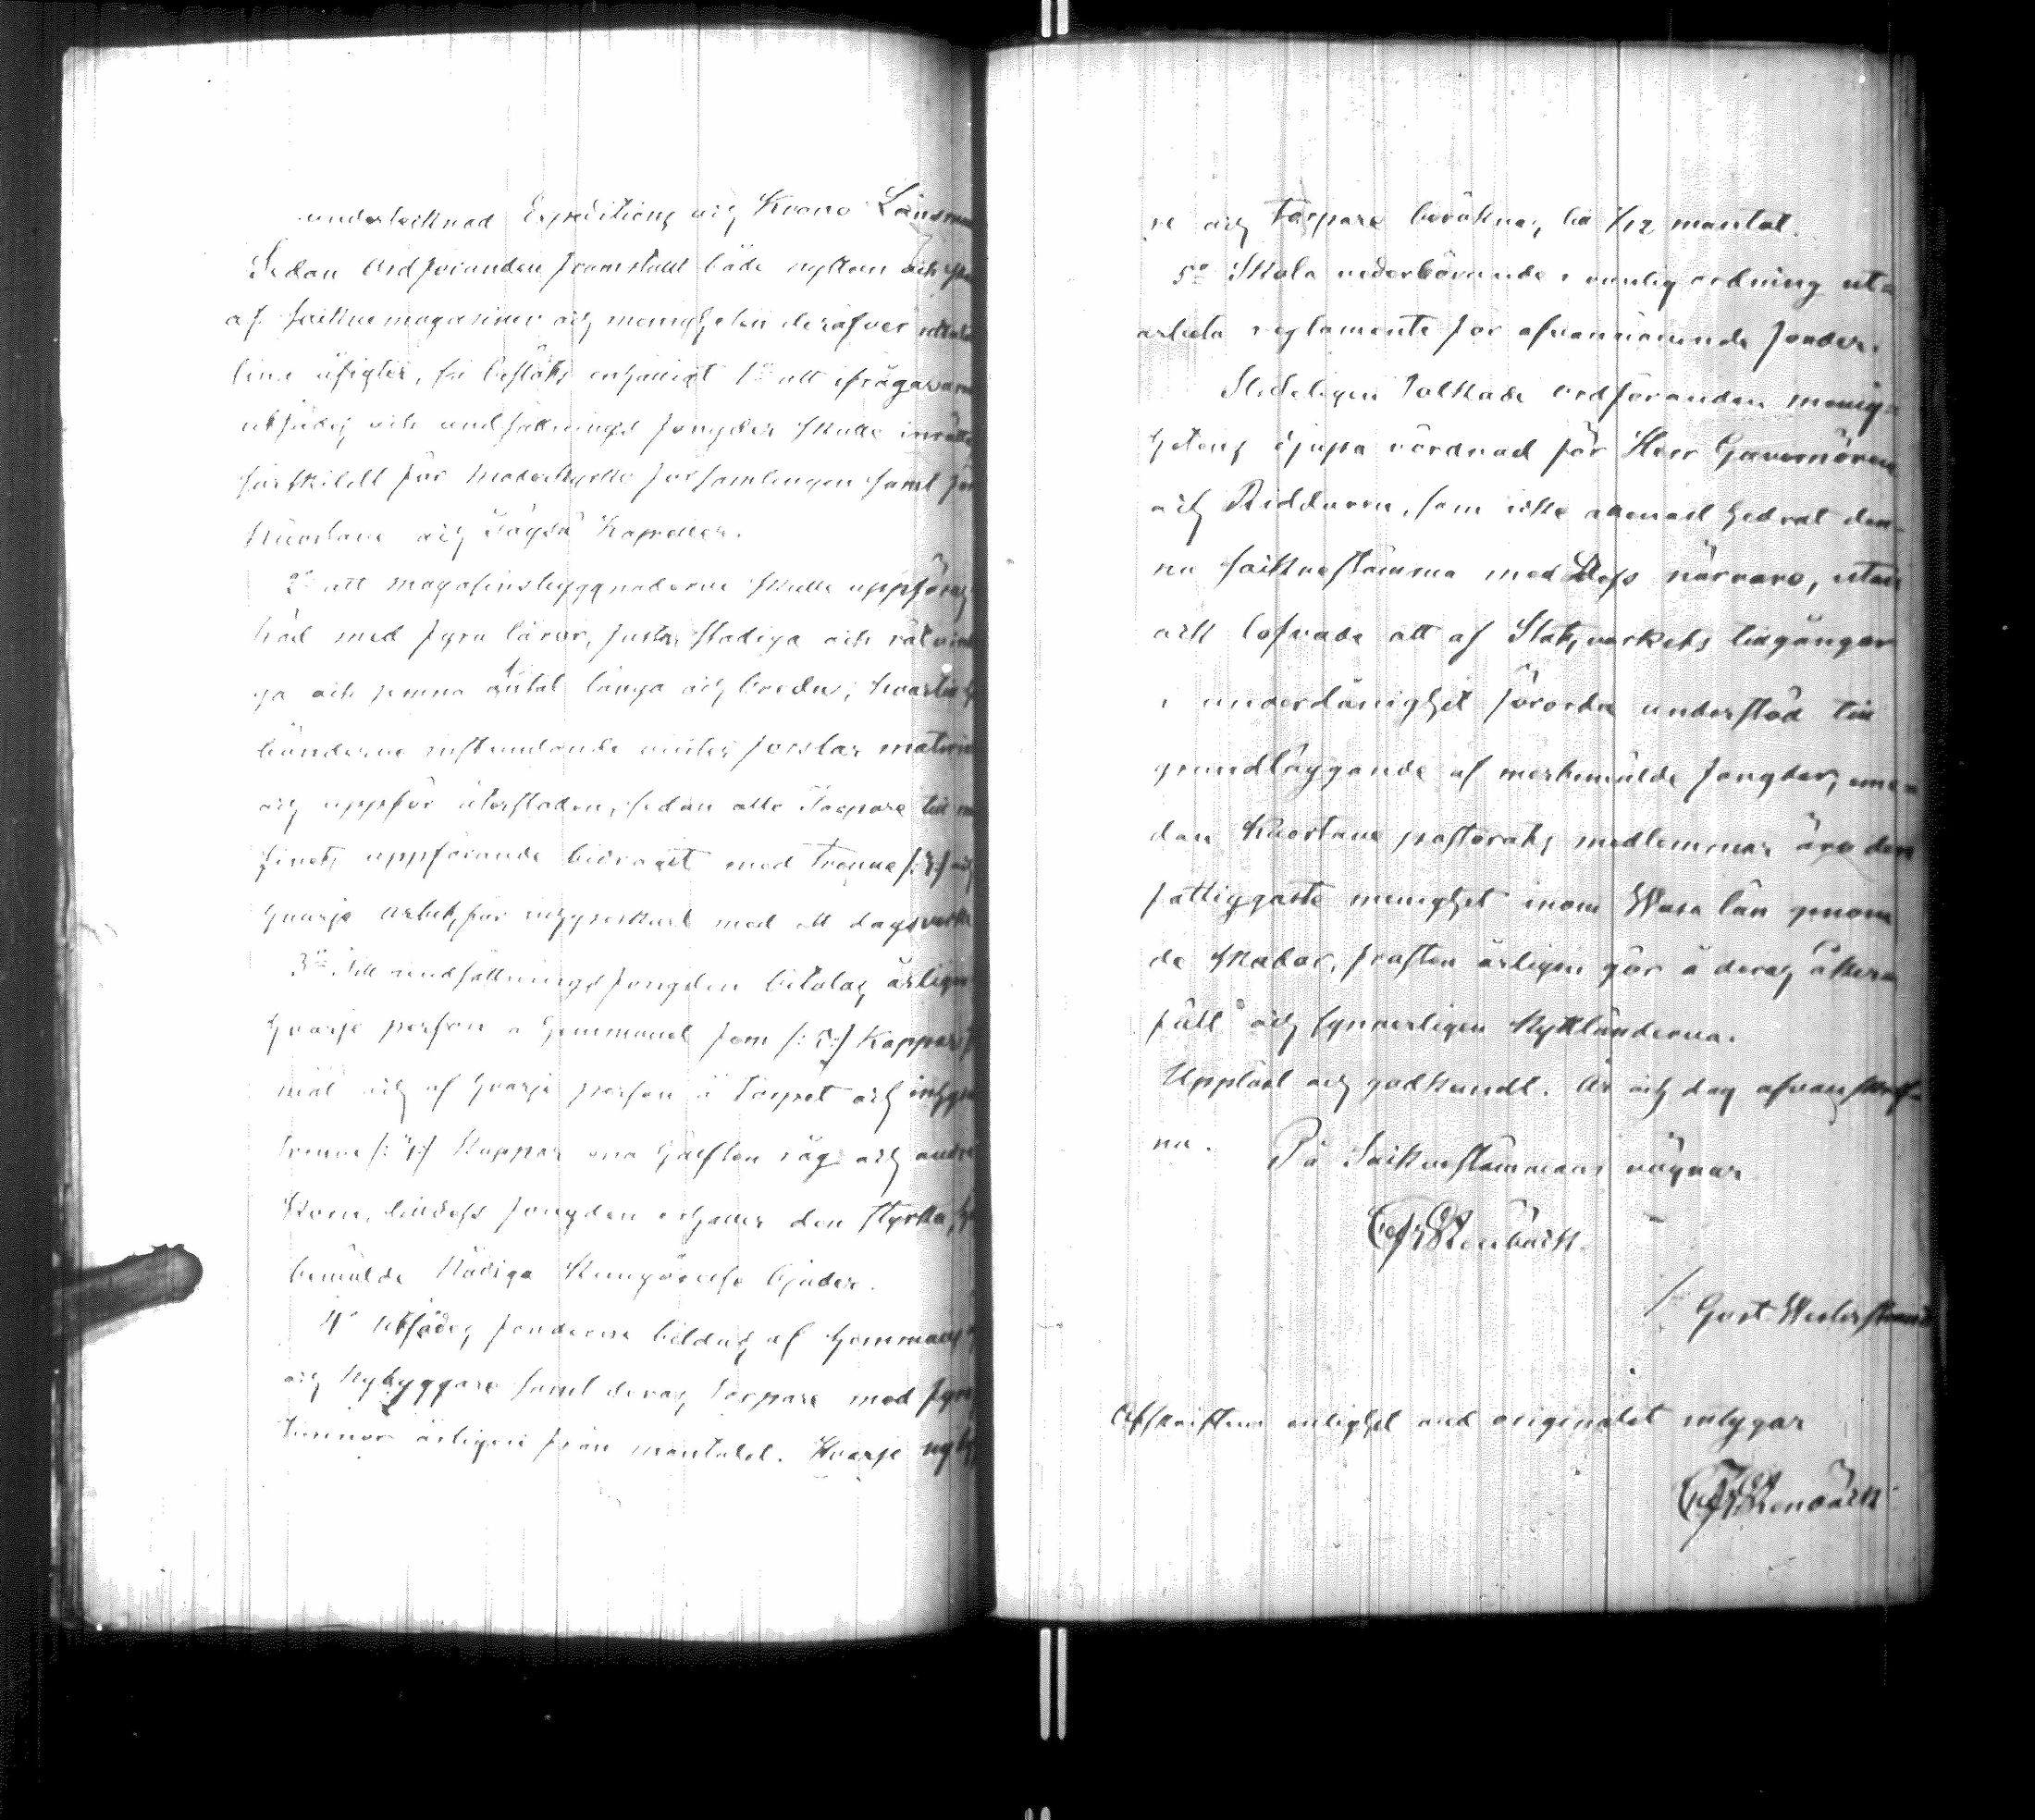 undertecknad Expeditions och Krono Länsman
Sedan Ordföranden framställt både nyttan och
af sockne magasiner och menigheten deröfver uttalat
sine åsigter, så beslöts enhälligt 1o att ifrågavarande
utsädes och undsättnings fonder skulle inrättas
särskildt för Moderkyrko församlingen samt för
Kuortane och Töysä Kapeller.
2o att magasinsbyggnaderne skulle uppföras
med fyra lårar, stadiga och
ga och jemna antal långa och breda; hvartill
bönderne instundande vinter forslar material
och uppför återstoden, sedan alle Torpare till ma
sinets uppförande bidragit med trenne /:3:/ och
hvarje arbetsför inhyseskarl med ett dagsverke
3o Till undsättningsfonden betalas årligen
hvarje person å hemmanet fem /:5:/ Kappar
mål och af hvarje person å torpet och inhyses
trenne /:3:/ Kappar ena hälften råg och andra
Korn, tilldess fonden erhåller den styrka,
bemälde Nådiga Kungörelse bjuder.
4o Utsädes fonderne bildas af hemmans
och Nybyggare samt deras torpare med fyra
tunnor årligen från mantalet. Hvarje nyby
re och torpare beräknas till 1/12 mantal.
5o Skola vederbörande i vanlig ordning ut-
arbeta reglemente för ofvannämnde fonder.
Slutligen tolkade ordföranden menig-
hetens djupa vördnad för Herr Guvernören
och Riddaren, som icke allenast hedrat den-
na socknestämma med Dess närvaro, utan
ock lofvade att af Statsverkets tillgångar
i underdånighet förorda understöd till
grundläggande af merbemälde fonder, eme-
dan Kuortane pastorats medlemmar äro den
fattigaste menighet inom Wasa län genom
de skador, frosten årligen gör å deras åkern
fält och synnerligen Kyttländerna.
Uppläst och godkändt. År och dag ofvanskref-
na. På Socknestämmans vägnar
Stenbäck.
/ Gust. Westerstrand
Afskriftens enlighet med originalet intygar
Stenbäck